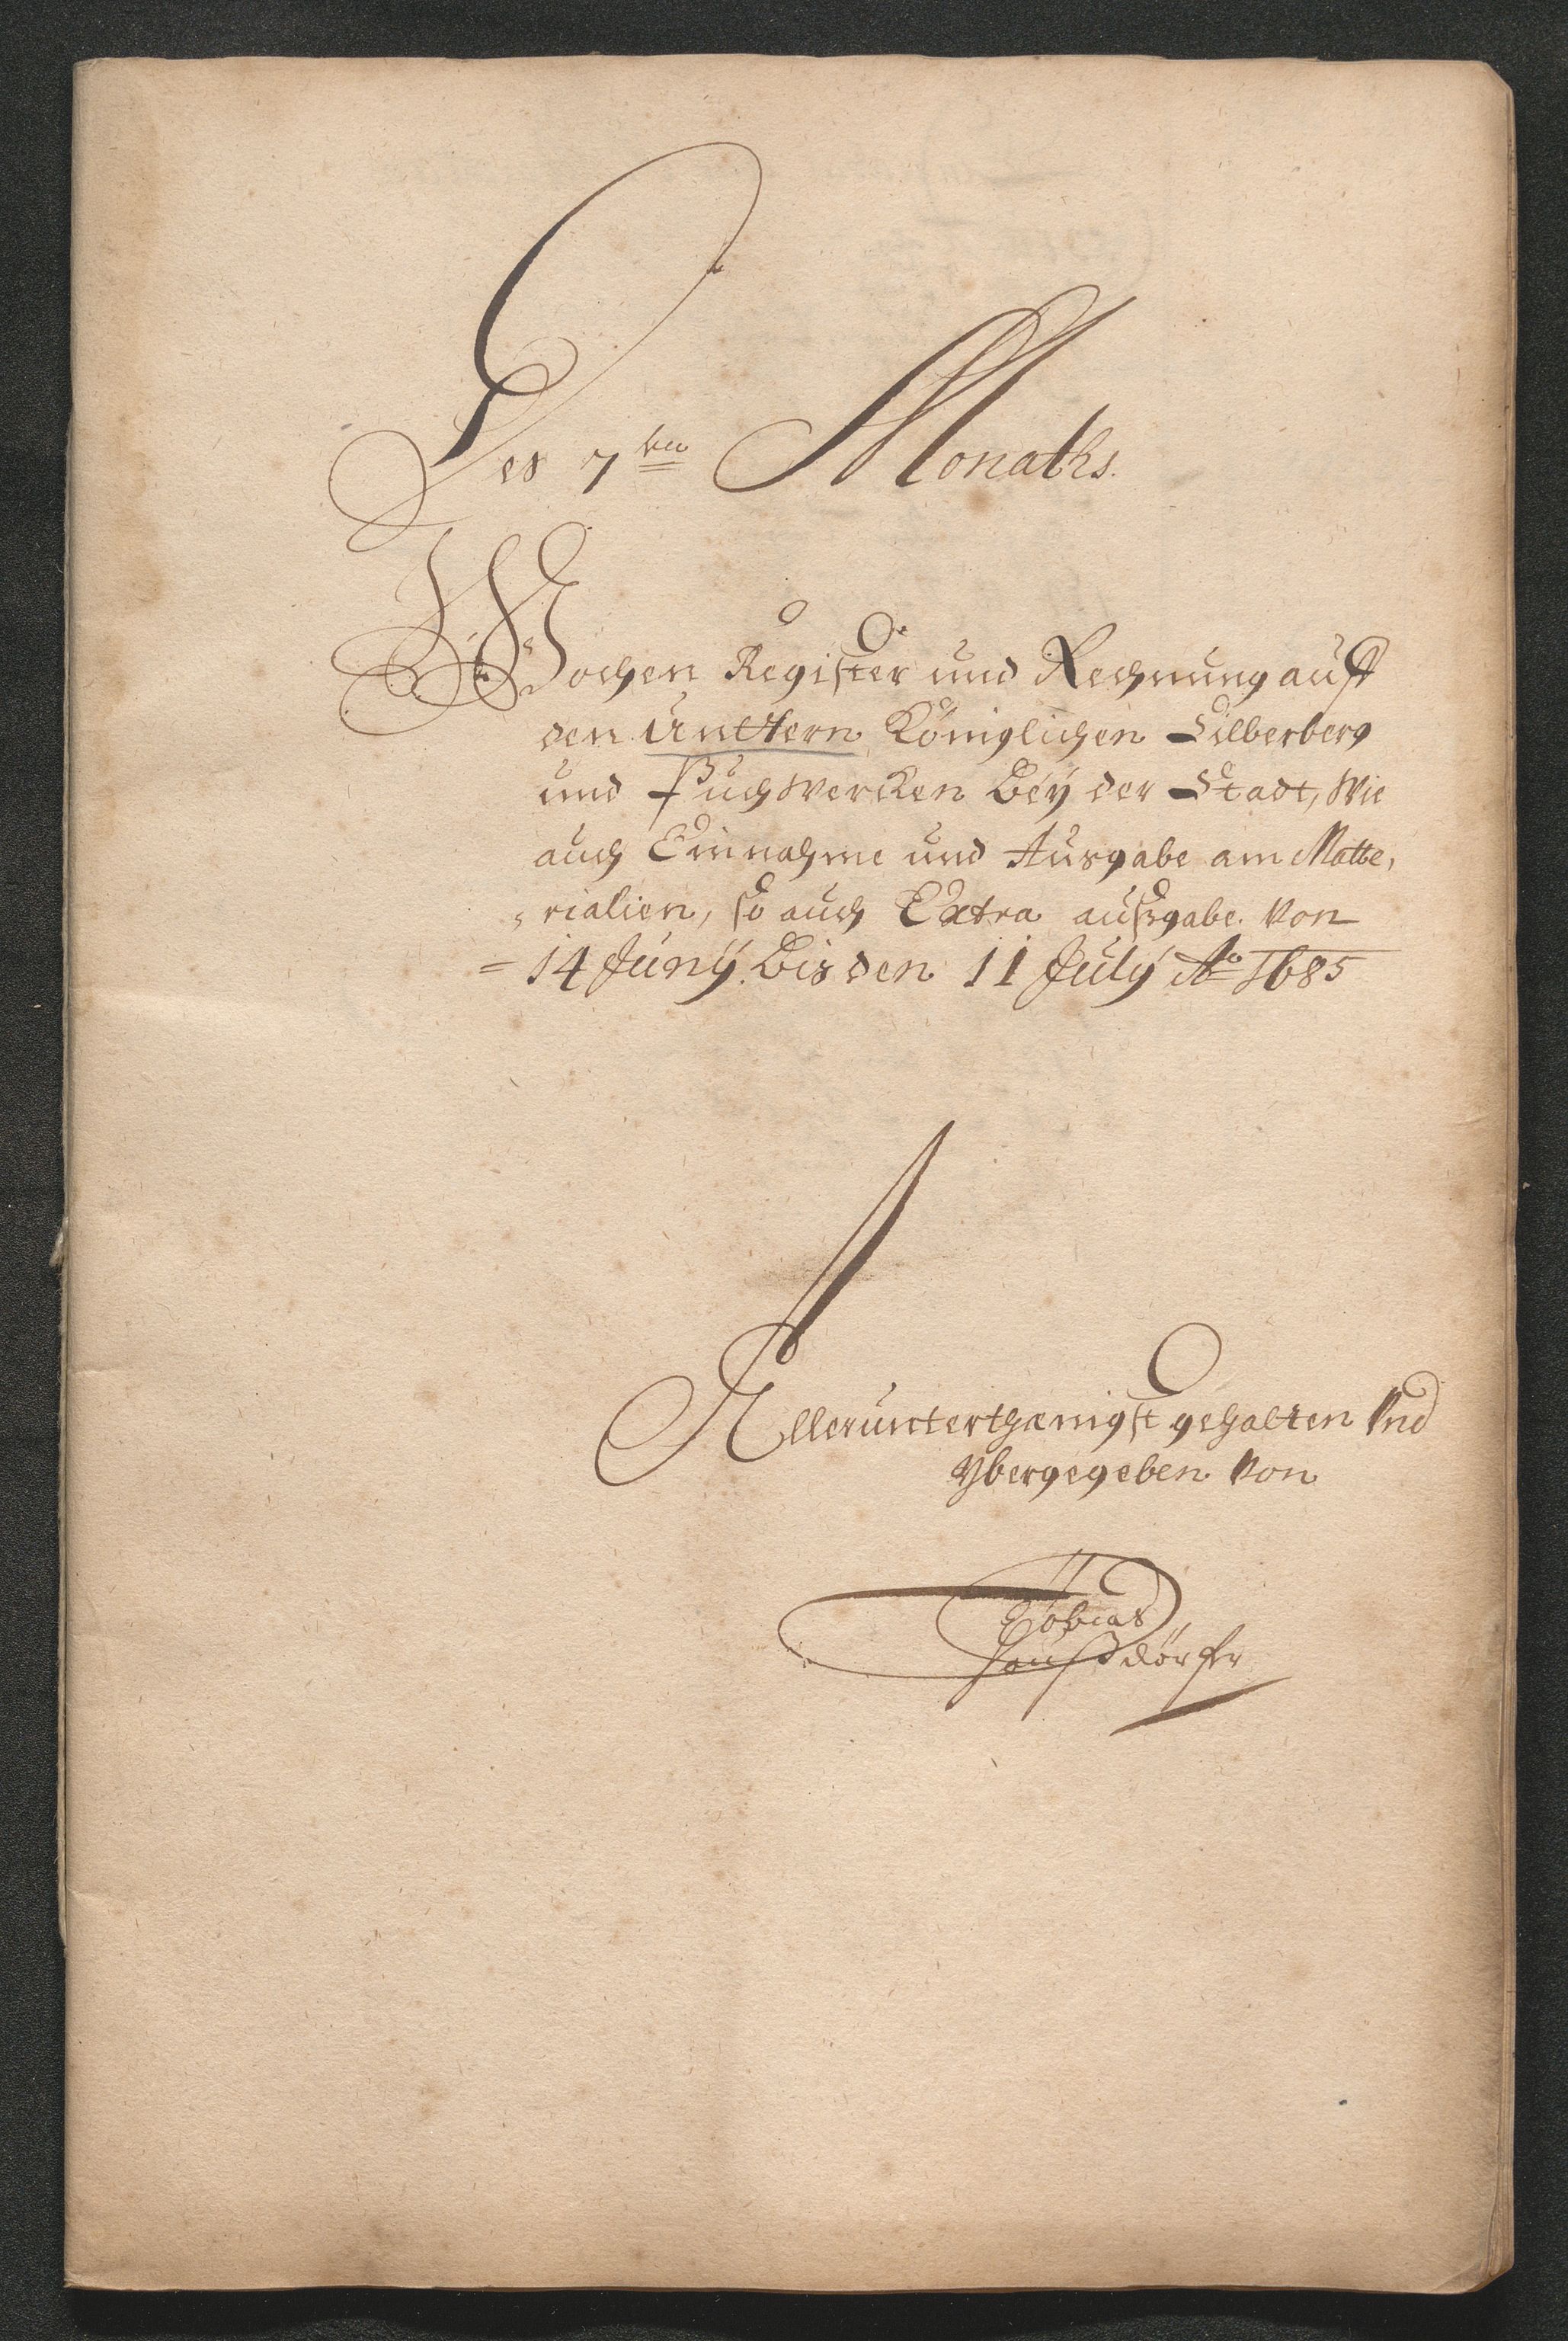 Des 7ten Monaths.
Wochen Register und Rechnung auff
den Unttern Königlichen Silberberg
und Puchwercken beÿ der Stadt, Wie
auch Einnahme und Ausgabe am Matte,
„rialien, so auch Extra ausgabe. Von
= 14 Junÿ. bis den 11 Julÿ Ao 1685
Allerunterthænigst gehalten Vnd
Ybergegeben Von
Tobias
haußdörfer